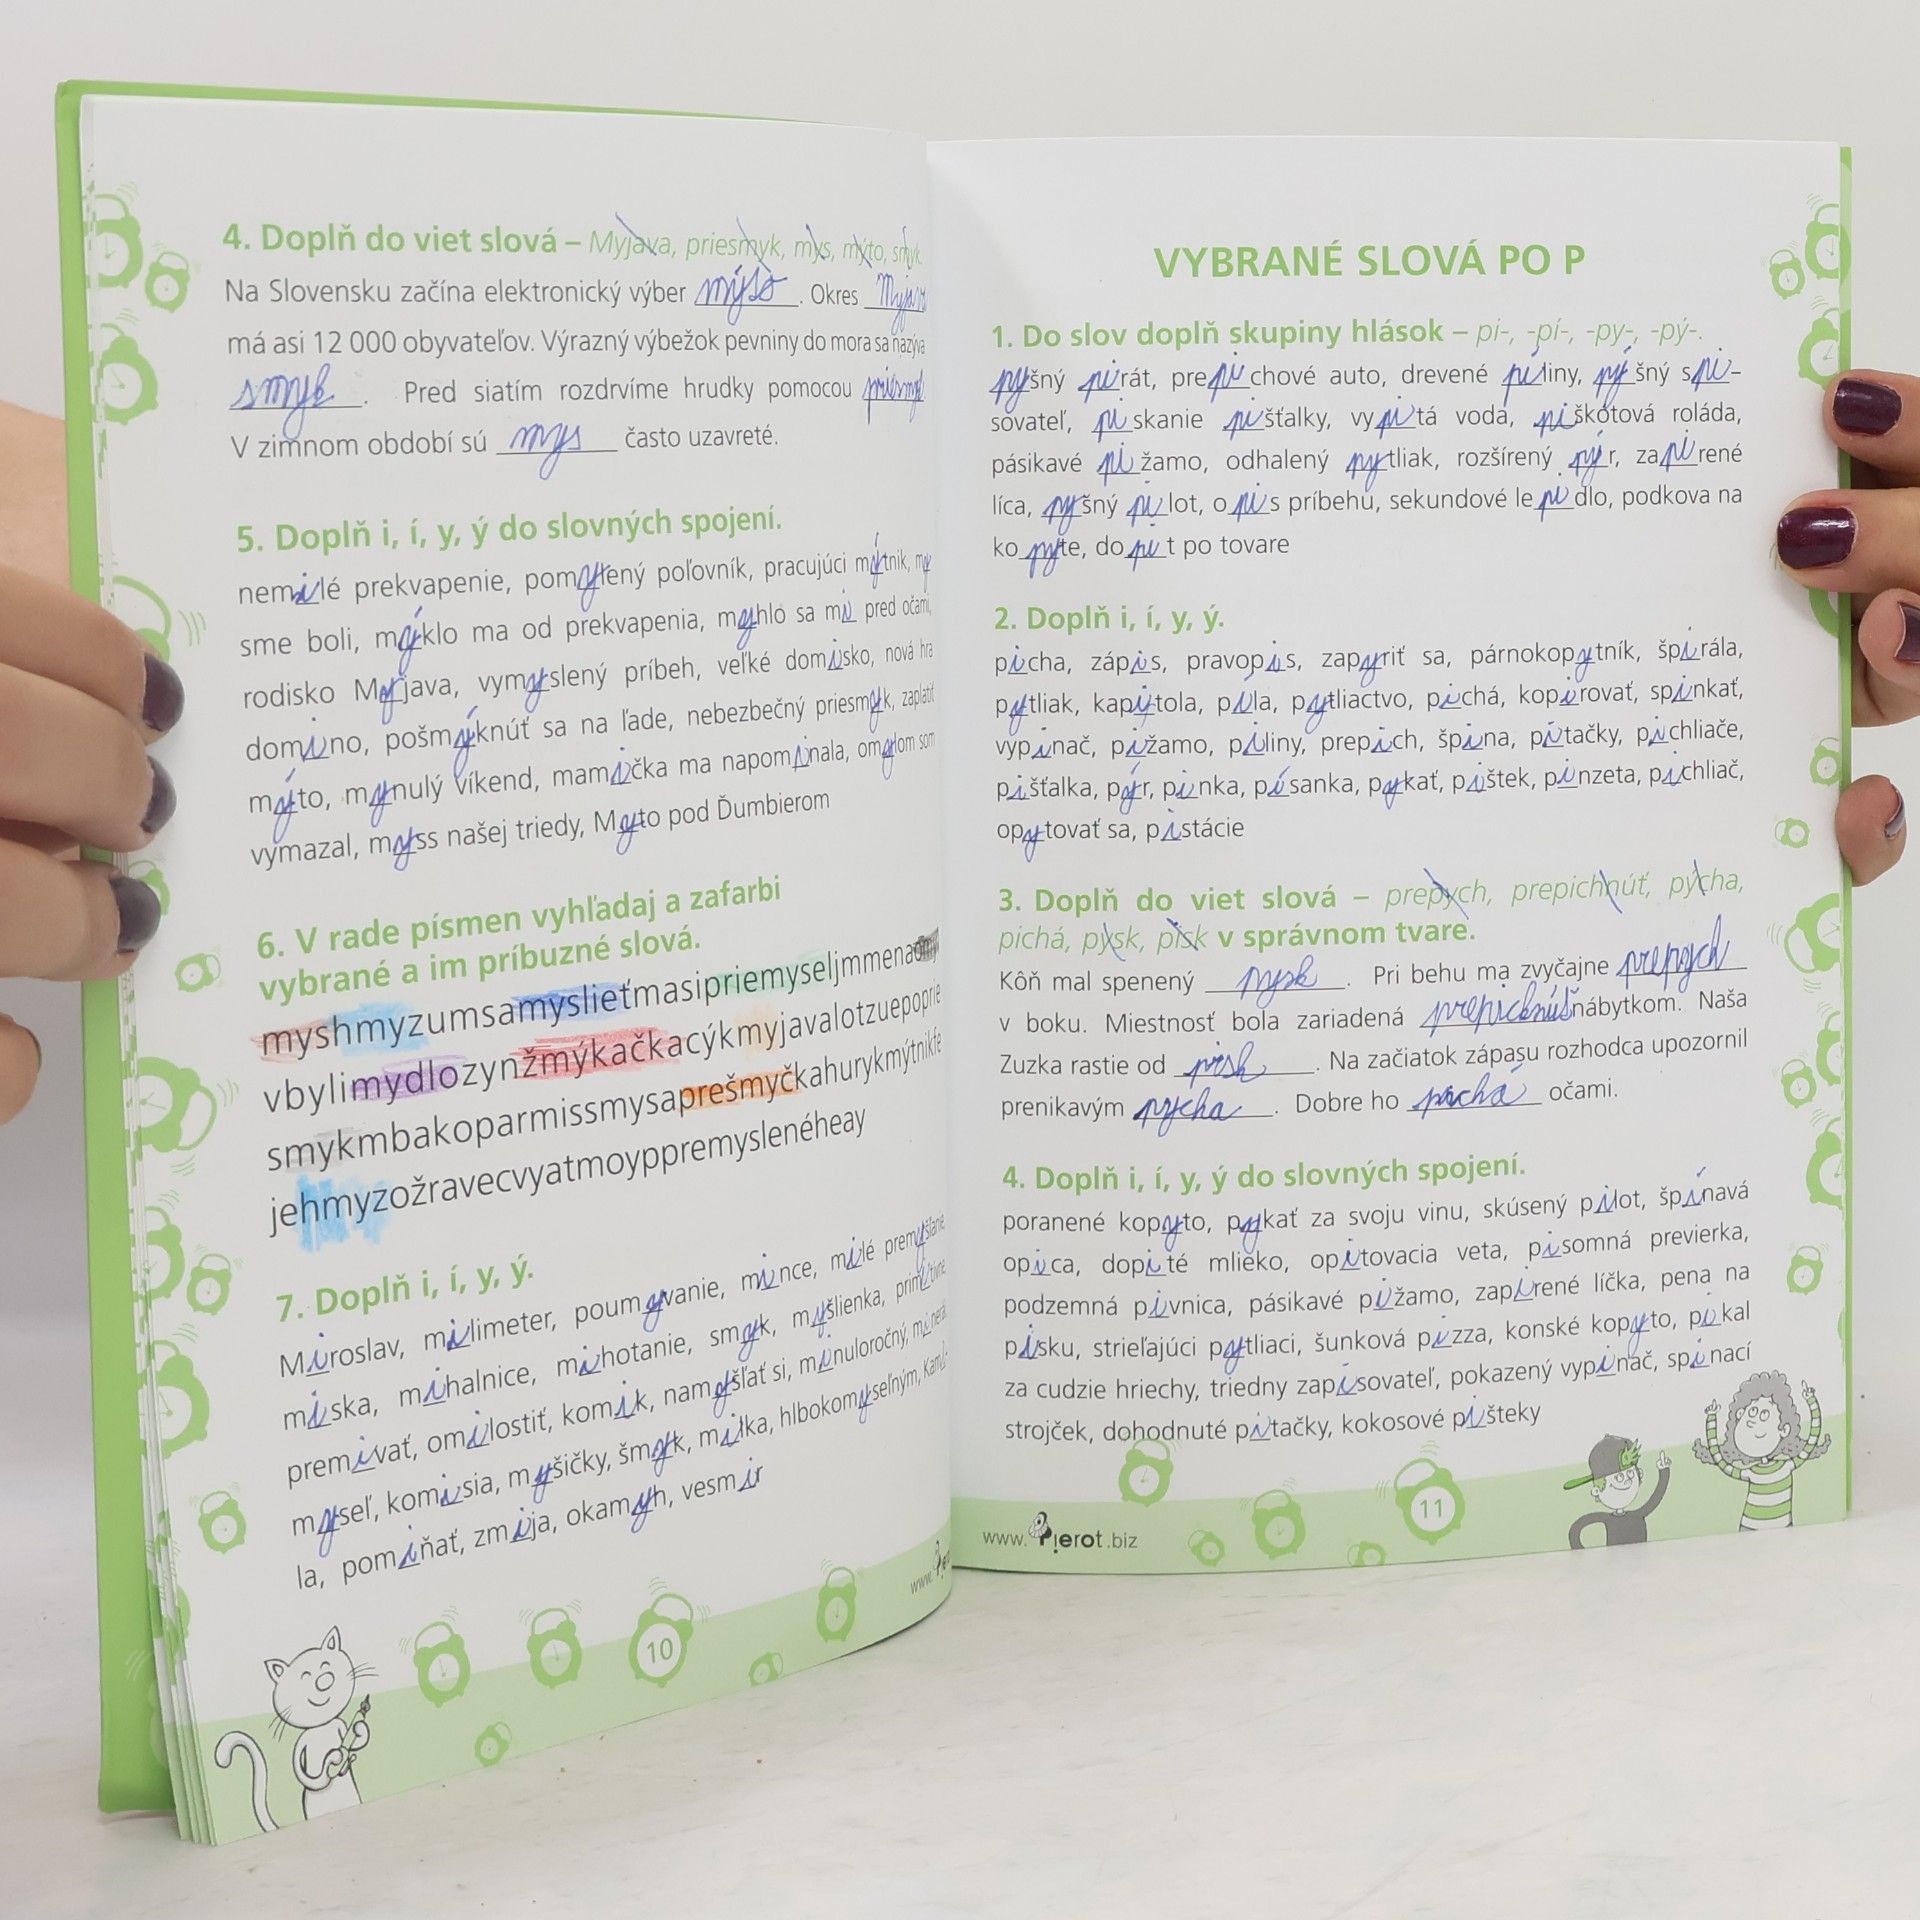 4. Doplň do viet slová – Myjava, priesmyk, mys, mýto, smyk.
Na Slovensku začína elektronický výber mýto. Okres Myjava
má asi 12 000 obyvateľov. Výrazný výbežok pevniny do mora sa nazýva
smyk. Pred siatím rozdrvíme hrudky pomocou priesmyk
V zimnom období sú mys často uzavreté.
5. Doplň i, í, y, ý do slovných spojení.
nemilé prekvapenie, pomylený poľovník, pracujúci mýtnik, my
sme boli, mýklo ma od prekvapenia, myhlo sa mi pred očami,
rodisko Myjava, vymyslený príbeh, veľké domisko, nová hra
domino, pošmýknúť sa na ľade, nebezbečný priesmyk, zaplatiť
mýto, mynulý víkend, mamička ma napominala, omylom som
vymazal, myss našej triedy, Myto pod Ďumbierom
6. V rade písmen vyhľadaj a zafarbi
vybrané a im príbuzné slová.
myshmyzumsamyslieťmasipriemyseljmmena
vbylimydlozynžmýkačkacýkmyjavalotzuepoprie
smykmbakoparmissmysaprešmyčkahurykmýtnikfe
jehmyzožravecvyatmoyppremyslenéheay
7. Doplň i, í, y, ý.
Miroslav, milimeter, poumyvanie, mince, milé premyšľanie
miska, mihalnice, mihotanie, smyk, myšlienka, primitívne
premivať, omilostiť, komik, namyšľať si, minuloročný, minerál
myseľ, komisia, myšičky, šmyk, milka, hlbokomyseľným, Kami-
la, pomiňať, zmija, okamyh, vesmir
10
VYBRANÉ SLOVÁ PO P
1. Do slov doplň skupiny hlások – pi-, -pí-, -py-, -pý-.
pyšný pirát, prepichové auto, drevené píliny, pýšný spi-
sovateľ, piskanie pišťalky, vypitá voda, piškótová roláda,
pásikavé pižamo, odhalený pytliak, rozšírený pýr, zapirené
líca, pyšný pilot, opis príbehu, sekundové lepidlo, podkova na
kopyte, dopit po tovare
2. Doplň i, í, y, ý.
picha, zápis, pravopis, zapyriť sa, párnokopytník, špirála,
pytliak, kapitola, píla, pytliactvo, pichá, kopirovať, spinkať,
vypinač, pižamo, piliny, prepich, špina, pitačky, pichliače,
pišťalka, pýr, pinka, písanka, pykať, pištek, pinzeta, pichliač,
opytovať sa, pistácie
3. Doplň do viet slová – prepych, prepichnúť, pýcha,
pichá, pysk, pisk v správnom tvare.
Kôň mal spenený pysk. Pri behu ma zvyčajne prepych
v boku. Miestnosť bola zariadená prepichnúť nábytkom. Naša
Zuzka rastie od pisk. Na začiatok zápasu rozhodca upozornil
prenikavým pycha. Dobre ho pichá očami.
4. Doplň i, í, y, ý do slovných spojení.
poranené kopyto, pykať za svoju vinu, skúsený pilot, špínavá
opica, dopité mlieko, opitovacia veta, pisomná previerka,
podzemná pivnica, pásikavé pižamo, zapirené líčka, pena na
pisku, strieľajúci pytliaci, šunková pizza, konské kopyto, pikal
za cudzie hriechy, triedny zapisovateľ, pokazený vypinač, spinací
strojček, dohodnuté pitačky, kokosové pišteky
www.Pierot.biz
11